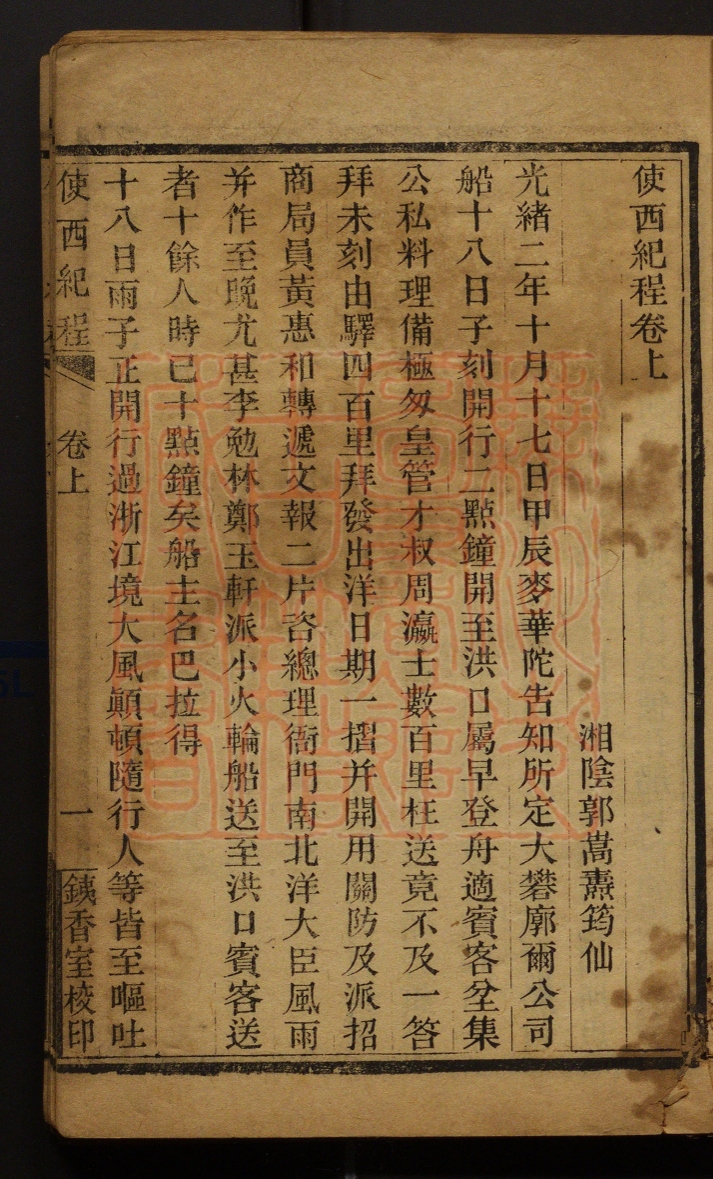 使西紀程卷上
湘陰郭嵩燾筠仙
光緒二年十月十七日甲辰麥華陀告知所定大礬廓爾公司
船十八日子刻開行二點鐘開至洪口屬早登舟適賓客坌集
公私料理備極匆皇管才叔周瀛士數百里枉送竟不及一答
拜未刻由驛四百里拜發出洋日期一摺并開用關防及派招
商局員黃惠和轉遞文報二片咨總理衙門南北洋大臣風雨
并作至晚尤甚李勉林鄭玉軒派小火輪船送至洪口賓客送
者十餘人時已十點鐘矣船主名巴拉得
十八日雨子正開行過浙江境大風顛頓隨行人等皆至嘔吐
使西紀程 卷上 一 銕香室校印